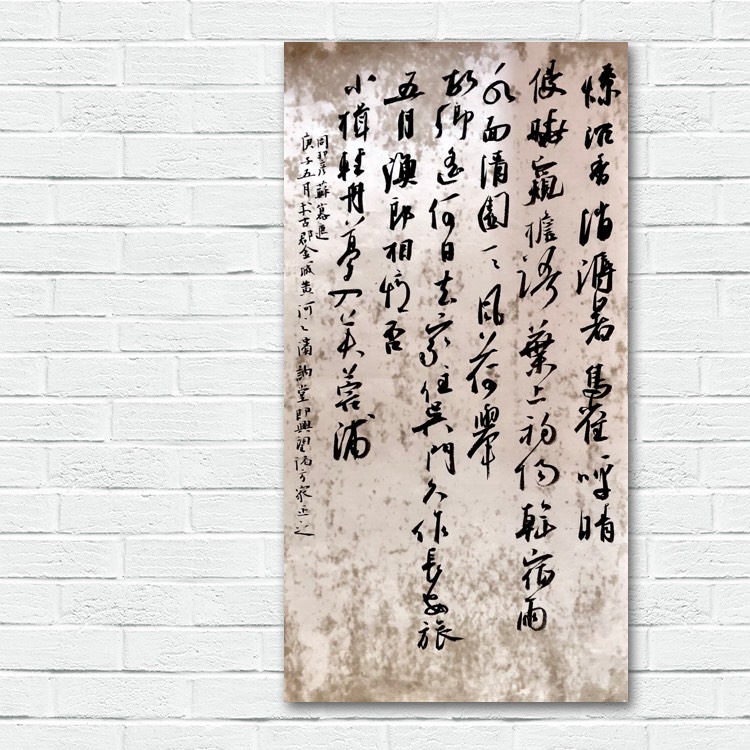 燎沉香消溽暑鳥雀呼晴
侵曉窺檐語葉上初陽乾宿雨
水面清圓一一風荷舉
故鄉遙何日去家住吳門久作長安旅
五月漁郎相憶否
小楫輕舟夢入芙蓉浦
周邦彥蘇幕遮
庚子五月末古郡金城黃河之濱訥堂即興習請方家正之